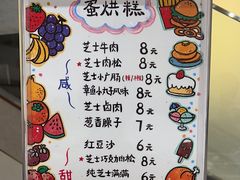 蛋烘糕
咸
芝士牛肉 8元
芝士肉松 8元
芝士小广肠 8元
章鱼小丸子风味 8元
芝士卤肉 8元
葱香臊子 7元
甜
红豆沙 6元
芝士巧克力肉松 8元
纯芝士满满 6元